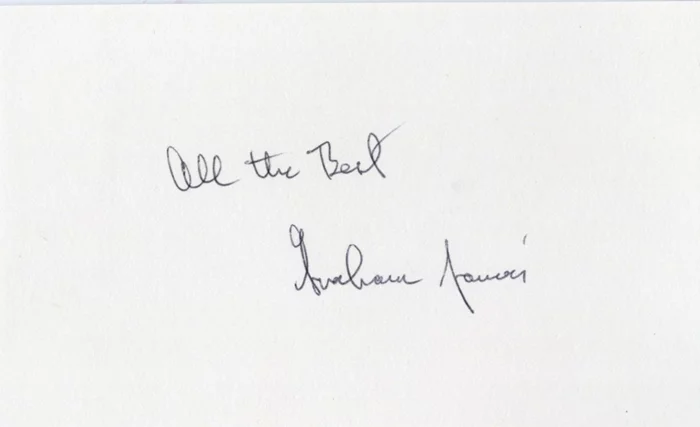 All the Best
Graham